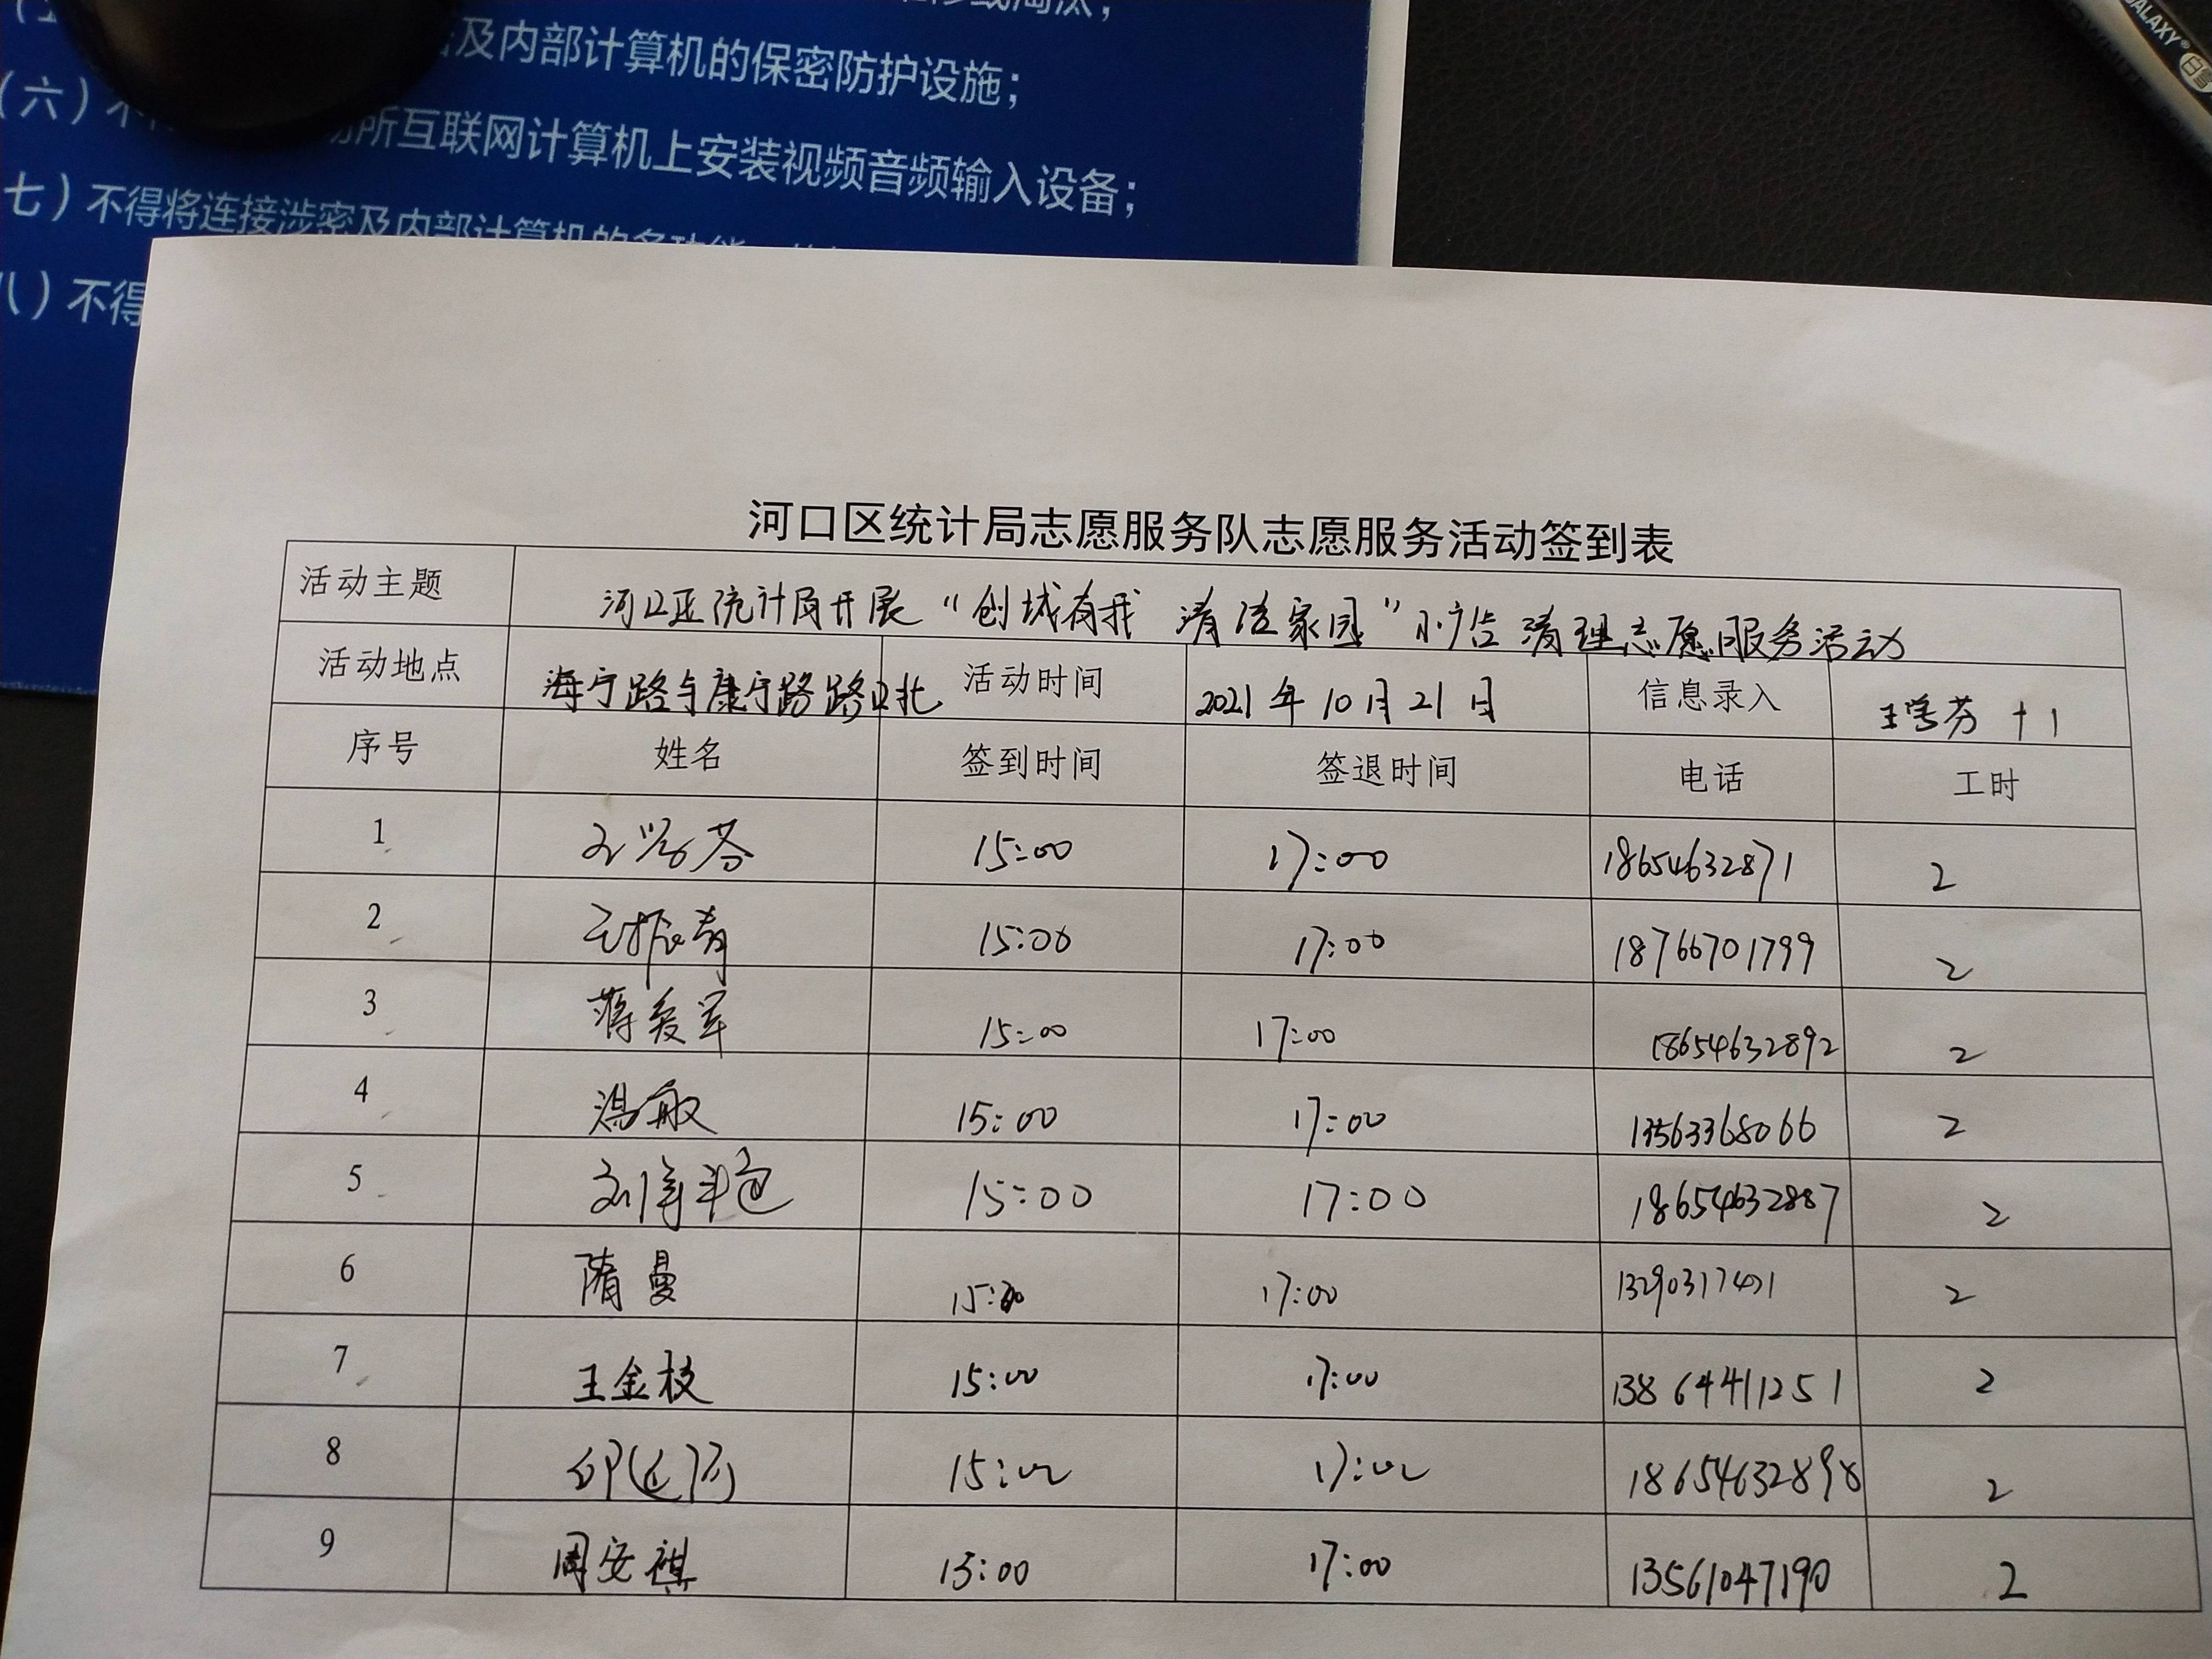 及内部计算机的保密防护设施；
（六）不
所互联网计算机上安装视频音频输入设备；
七）不得将连接涉密及内部计算机的多功能一体
八）不得
GALAXY
河口区统计局志愿服务队志愿服务活动签到表
活动主题 河口区统计局开展“创城有我 清洁家园”小广告清理志愿服务活动
活动地点 海宁路与康宁路路口北 活动时间 2021年10月21日 信息录入 王学芬 +1
序号 姓名 签到时间 签退时间 电话 工时
1 15:00 17:00 18654632871 2
2 15:00 17:00 18766701799 2
3 蒋爱军 15:00 17:00 18654632892 2
4 冯敏 15:00 17:00 13563368066 2
5 15:00 17:00 18654632887 2
6 隋曼 15:00 17:00 2
7 王金枝 15:00 17:00 13864411251 2
8 15:00 17:00 18654632898 2
9 周安祺 15:00 17:00 13561047190 2